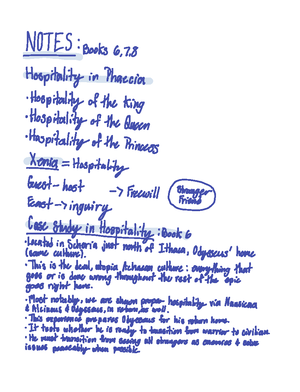 NOTES: Books 6,7,8
Hospitality in Phaecia
• Hospitality of the King
• Hospitality of the Queen
• Hospitality of the Princess
Xenia = Hospitality
Guest - host → Freewill
Stranger
Friend
Feast → inquiry
Case Study in Hospitality: Book 6
• Located in Scheria just north of Ithaca, Odysseus' home
(same culture).
• This is the ideal, utopia Achaean culture: everything that
goes or is done wrong throughout the rest of the epic
goes right here.
• Most notably, we are shown proper hospitality via Nausicaa
& Alcinous & Odysseus, in return, as well.
• This experience prepares Odysseus for his return home.
• It tests whether he is ready to transition from warrior to civilian.
• He must transition from seeing all strangers as enemies & solve
issues peacefully when possible.